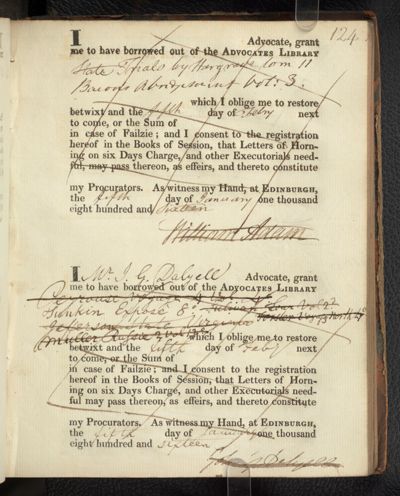 124.
I Advocate, grant
me to have borrowed out of the ADVOCATES LIBRARY
State Tryals by Hargrave tom 11
Bacons Abridgement Vol: 3.
which I oblige me to restore
betwixt and the fifth day of Febry next
to come, or the Sum of
in case of Failzie; and I consent to the registration
hereof in the Books of Session, that Letters of Horn-
ing on six Days Charge, and other Executorials need-
ful, may pass thereon, as effeirs, and thereto constitute
my Procurators. As witness my Hand, at EDINBURGH,
the fifth day of January one thousand
eight hundred and sixteen
William Adam
I Mr. J. G. Dalyell Advocate, grant
me to have borrowed out of the ADVOCATES LIBRARY
Voyage 4 Vol 4o
Expose 8o Tour Vol 2d
Virginia
which I oblige me to restore
betwixt and the fifth day of Feby next
to come, or the Sum of
in case of Failzie; and I consent to the registration
hereof in the Books of Session, that Letters of Horn-
ing on six Days Charge, and other Executorials need-
ful may pass thereon, as effeirs, and thereto constitute
my Procurators. As witness my Hand, at EDINBURGH,
the fifth day of January one thousand
eight hundred and sixteen
Dalyell